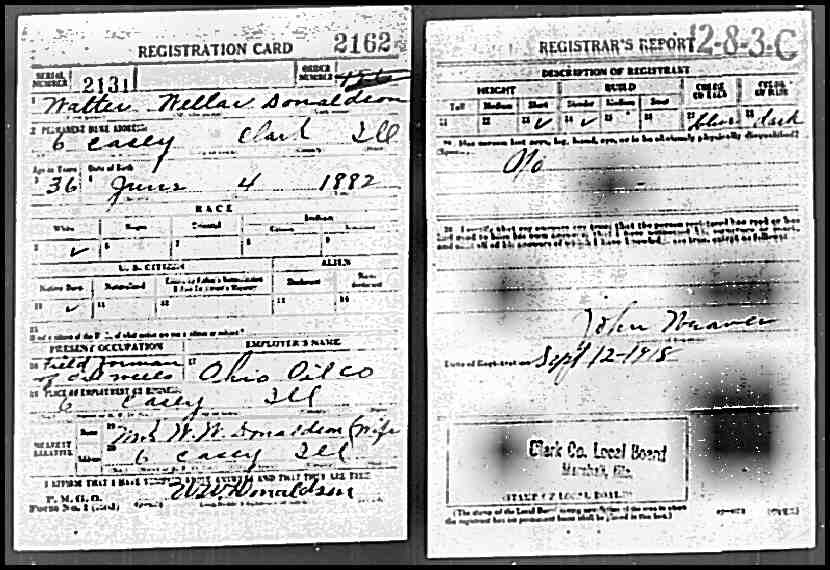 REGISTRATION CARD 2162
SERIAL NUMBER 2131 ORDER NUMBER
1 Walter Wellar Donaldson
2 PERMANENT HOME ADDRESS
6 Casey Clark Ill
Age in Years Date of Birth
3 36 4 June 4 1882
RACE
White Negro Oriental Indian
5 ✓ 6 7 8 9
U. S. CITIZEN ALIEN
Native Born Naturalized Declarant
10 ✓ 11 12 13 14
15
PRESENT OCCUPATION EMPLOYER'S NAME
16 Field forman 17
of oil wells Ohio Oil Co
18 PLACE OF EMPLOYMENT OR BUSINESS
6 Casey Ill
NEAREST RELATIVE Name 19 Mrs W. W. Donaldson (wife
Address 20 6 Casey Ill
I AFFIRM THAT I HAVE VERIFIED ABOVE ANSWERS AND THAT THEY ARE TRUE
P. M. G. O.
Form No. 1 (Red) W W Donaldson
REGISTRAR'S REPORT 12-8-3-C
DESCRIPTION OF REGISTRANT
HEIGHT BUILD COLOR OF EYES COLOR OF HAIR
Tall Medium Short Slender Medium Stout
21 22 23 ✓ 24 ✓ 25 26 27 blue 28 dark
29 Has person lost arm, leg, hand, eye, or is he obviously physically disqualified?
No
30 I certify that my answers are true; that the person registered has read or has had read to him his own answers; that I have witnessed his signature or mark, and that all of his answers of which I have knowledge are true, except as follows:
John Weaver
Date of Registration Sept 12-1918
Clark Co. Local Board
Marshall, Ills.
(STAMP OF LOCAL BOARD)
(The stamp of the Local Board having jurisdiction of the area in which
the registrant has his permanent home shall be placed in this box.)